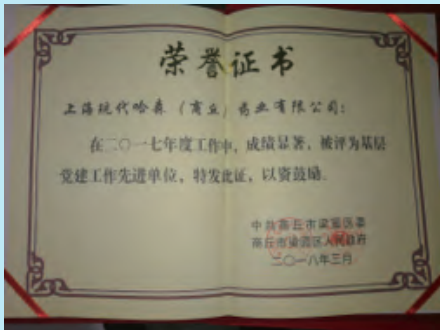 荣誉证书
上海现代哈森（商丘）药业有限公司：
在二〇一七年度工作中，成绩显著，被评为基层
党建工作先进单位，特发此证，以资鼓励。
中共商丘市梁园区委
商丘市梁园区人民政府
二〇一八年三月